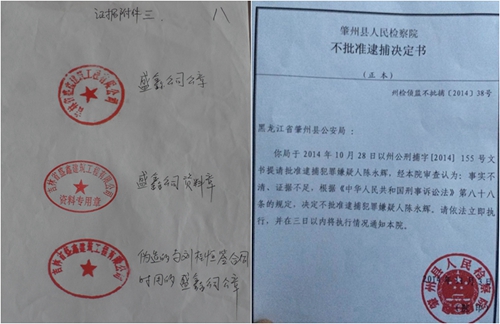 证据附件三
八
盛鑫公司公章
资料专用章
盛鑫公司资料章
伪造的与刘
签合同
时用的盛鑫公司公章
肇州县人民检察院
不批准逮捕决定书
（正本）
州检侦监不批捕〔2014〕38号
黑龙江省肇州县公安局：
你局于2014年10月28日以州公刑捕字[2014]155号文
书提请批准逮捕犯罪嫌疑人陈水辉，经本院审查认为：事实
不清，证据不足，根据《中华人民共和国刑事诉讼法》第八十八
条的规定，决定不批准逮捕犯罪嫌疑人陈水辉。请依法立即执
行，并在三日以内将执行情况通知本院。
肇州县人民检察院